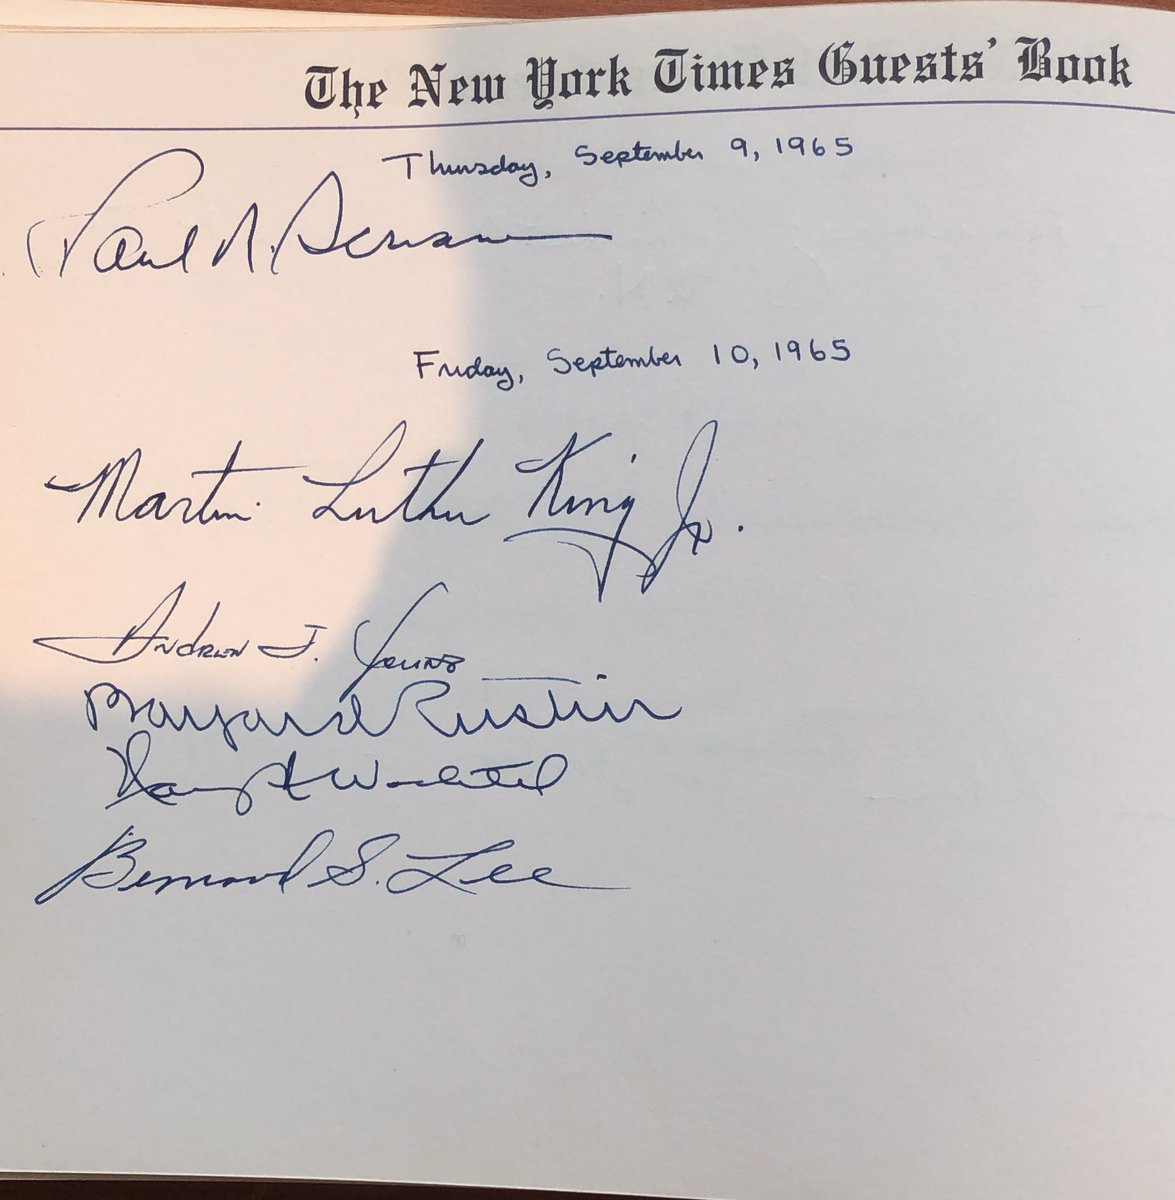 The New York Times Guests' Book
Thursday, September 9, 1965
Paul R. Screvane
Friday, September 10, 1965
Martin Luther King Jr.
Andrew J. Young
Bayard Rustin
Harry H. Wachtel
Bernard S. Lee